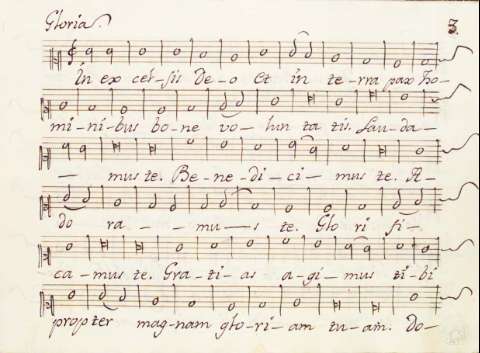 Gloria.
3.
In ex cel-sis De-o Et in te-rra pax ho-
mi-ni-bus bo-ne vo-lun ta tis. Lau-da-
- mus te. Be-ne-di-ci-mus te. A-
do ra- -mu-s te. Glo ri fi-
ca-mus te. Gra-ti-as a-gi-mus ti-bi
propter mag-nam glo-ri-am tu-am. Do-